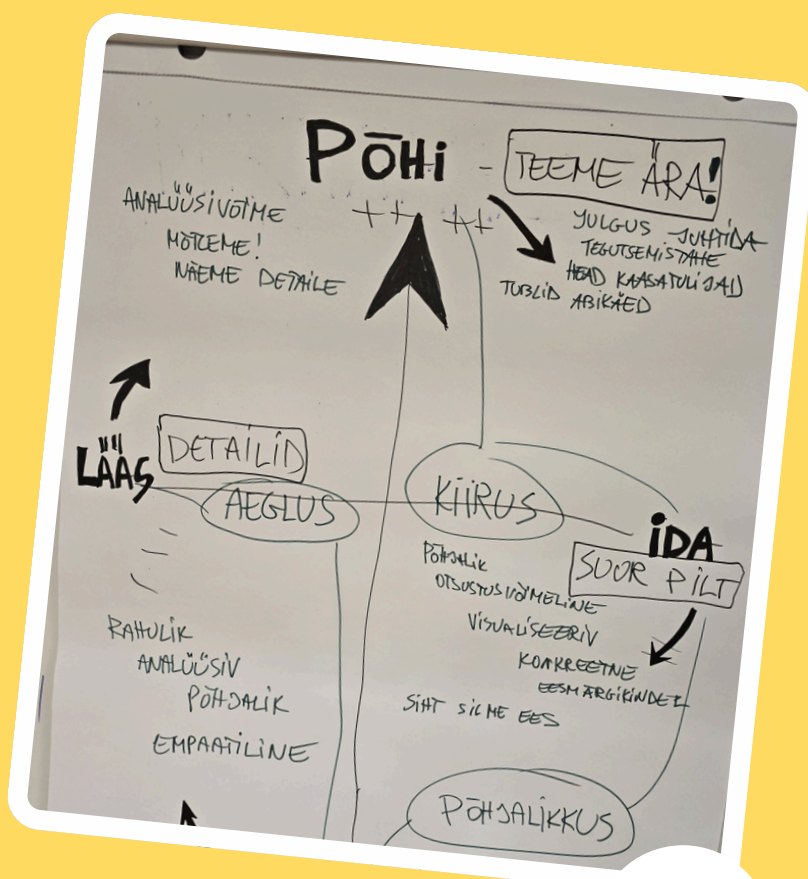 PÕHI - TEEME ÄRA!
ANALÜÜSIVÕIME
MÕTLEME!
NÄEME DETAILE
++ ++
JULGUS JUHTIDA
TEGUTSEMISTAHE
HEAD KAASATULIJAD
TUBLID ABIKÄED
LÄÄS
DETAILID
AEGLUS
KIIRUS
IDA
SUUR PILT
PÕHJALIK
OTSUSTUSVÕIMELINE
VISUALISEERIV
KONKREETNE
EESMÄRGIKINDEL
SIHT SILME EES
RAHULIK
ANALÜÜSIV
PÕHJALIK
EMPAATILINE
PÕHJALIKKUS